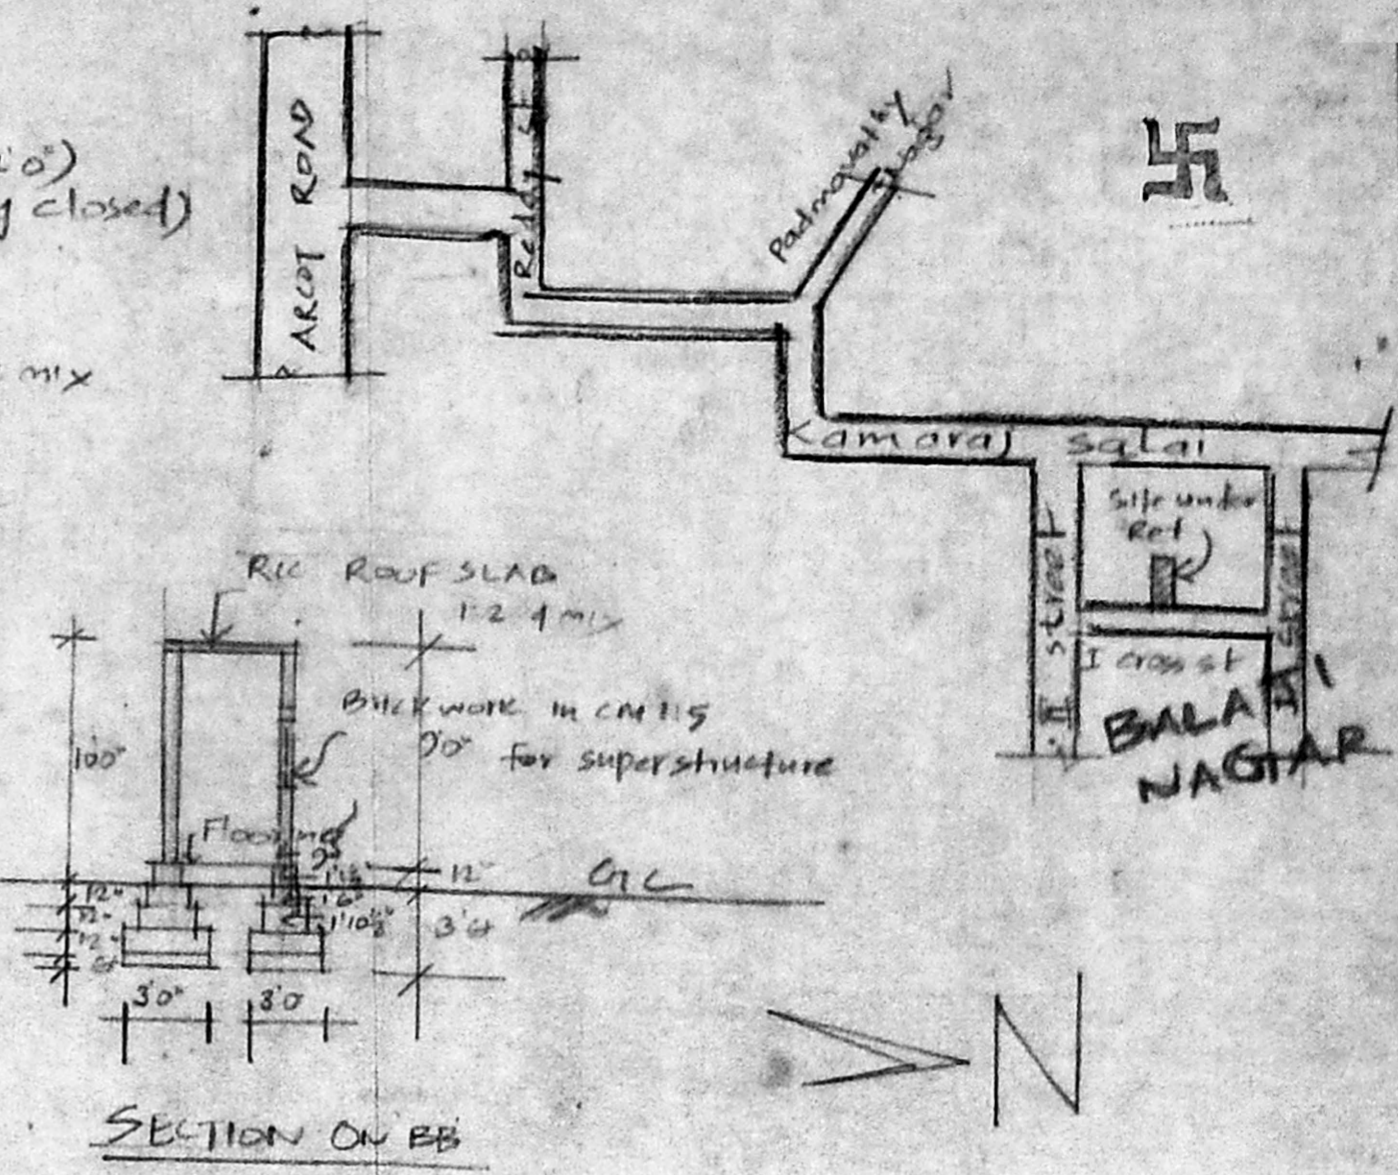 closed)
mix
ARCOT ROAD
Reddy st
Padmavathy
Nagar
Kamaraj salai
Site under
Ref
II street
I cross st
III street
BALAJI
NAGAR
RCC ROOF SLAB
1:2:4 mix
Brickwork in CM 1:5
for superstructure
10'0"
Flooring
12"
GL
12"
12"
12"
6"
1'6"
1'10½"
3'6"
3'0"
3'0"
N
SECTION ON BB